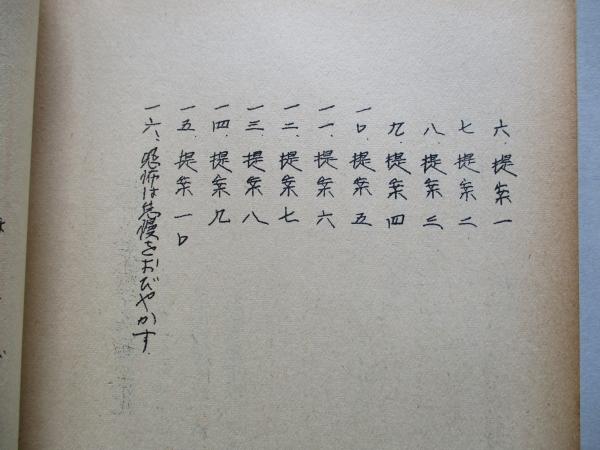 六、提案一
七、提案二
八、提案三
九、提案四
一〇、提案五
一一、提案六
一二、提案七
一三、提案八
一四、提案九
一五、提案一〇
一六、恐怖は怠慢をおびやかす